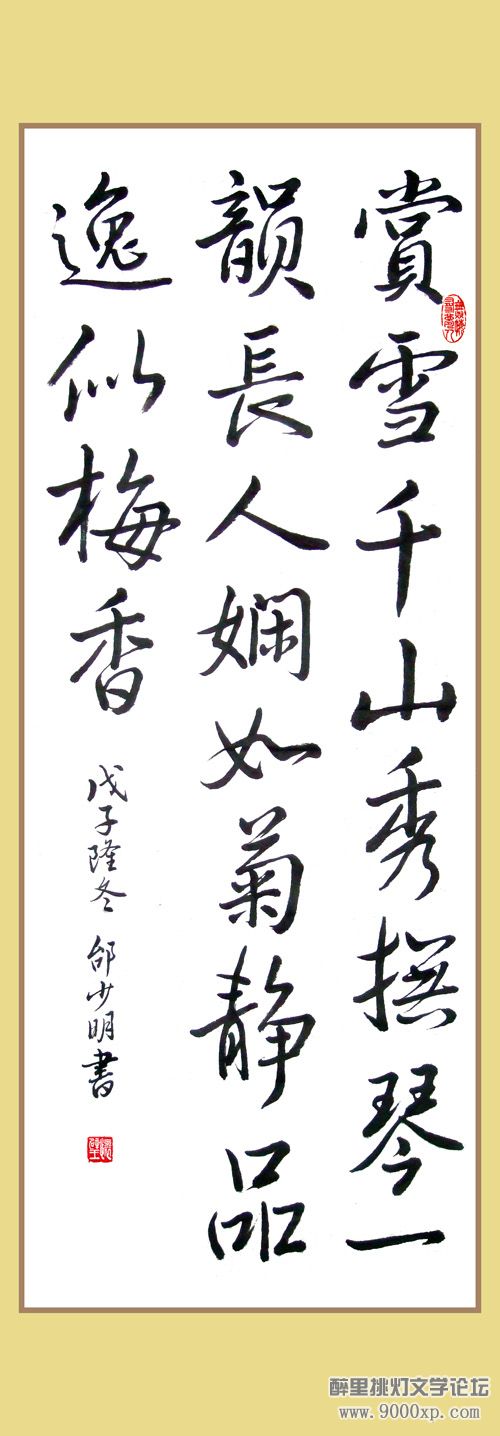 賞雪千山秀撰琴一
韻長人嫻如菊静品
逸似梅香
戊子隆冬 邰少明書
醉里挑灯文学论坛
www.9000xp.com